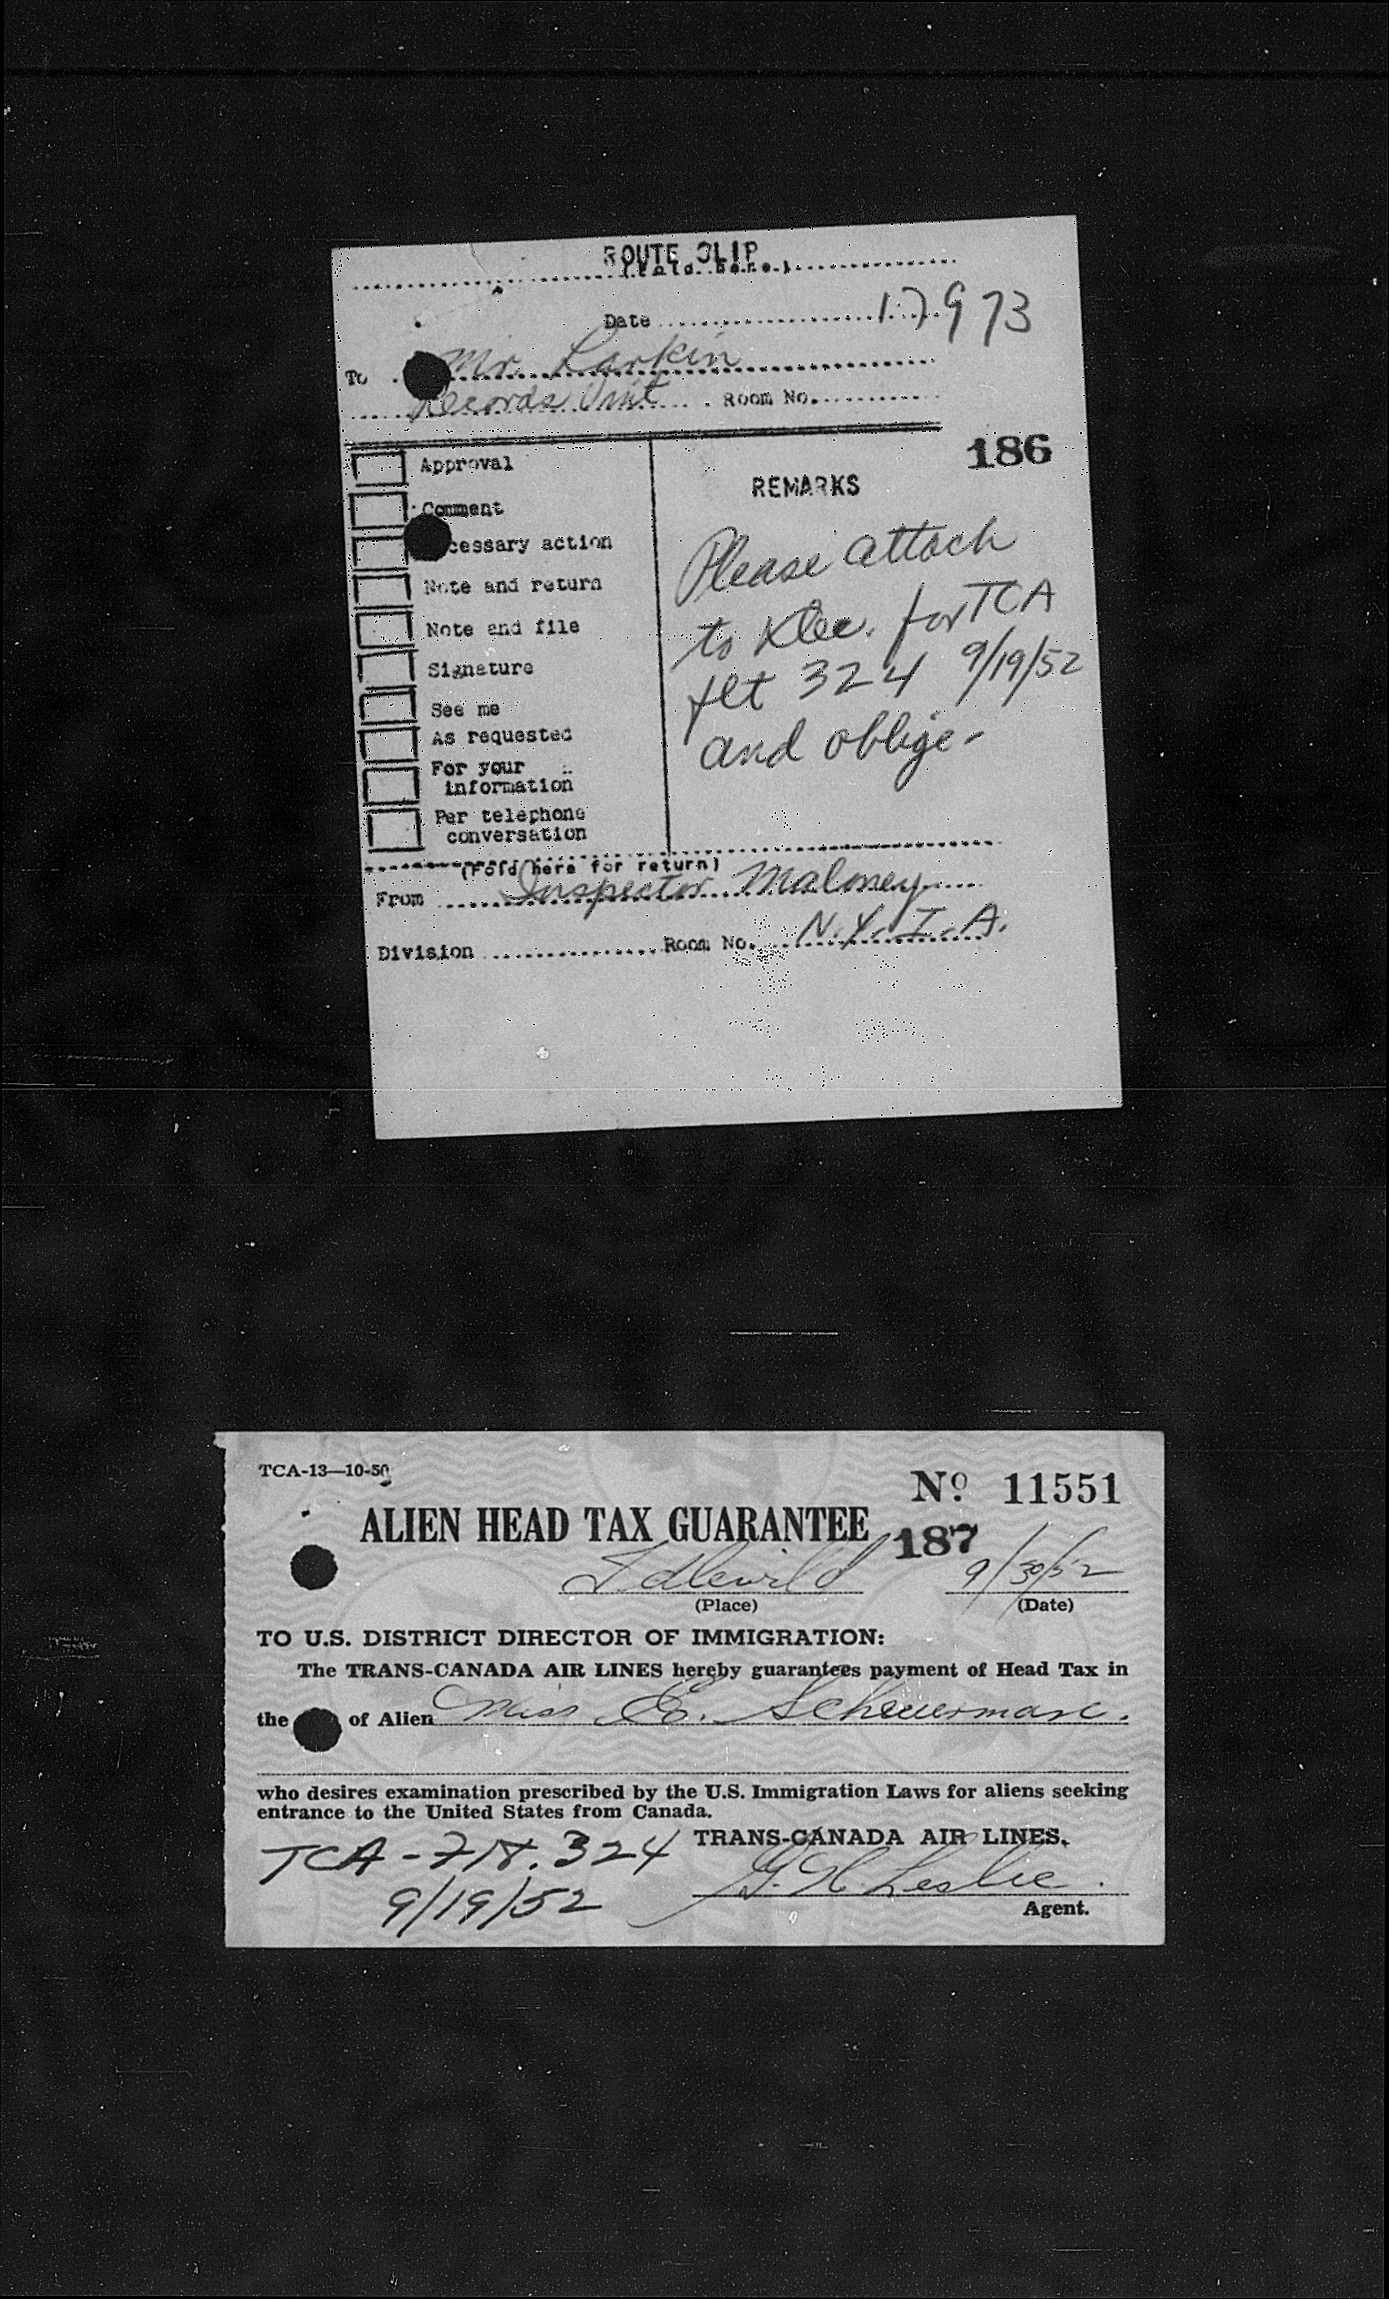 ROUTE SLIP
(Fold here)
Date 17973
To Mr. Larkin
Records Unit Room No.
186
Approval
Comment
cessary action
Note and return
Note and file
Signature
See me
As requested
For your
information
Per telephone
conversation
REMARKS
Please attach
to for TCA
flt 324 9/19/52
and oblige-
(Fold here for return)
From Inspector Maloney
Division Room No. N.Y.I.A.
TCA-13—10-50
No. 11551
ALIEN HEAD TAX GUARANTEE
187
Idlewild 9/30/52
(Place) (Date)
TO U.S. DISTRICT DIRECTOR OF IMMIGRATION:
The TRANS-CANADA AIR LINES hereby guarantees payment of Head Tax in
the of Alien Miss E. Scheuerman.
who desires examination prescribed by the U.S. Immigration Laws for aliens seeking
entrance to the United States from Canada.
TRANS-CANADA AIR LINES.
TCA - Flt. 324
9/19/52
G. H. Leslie.
Agent.